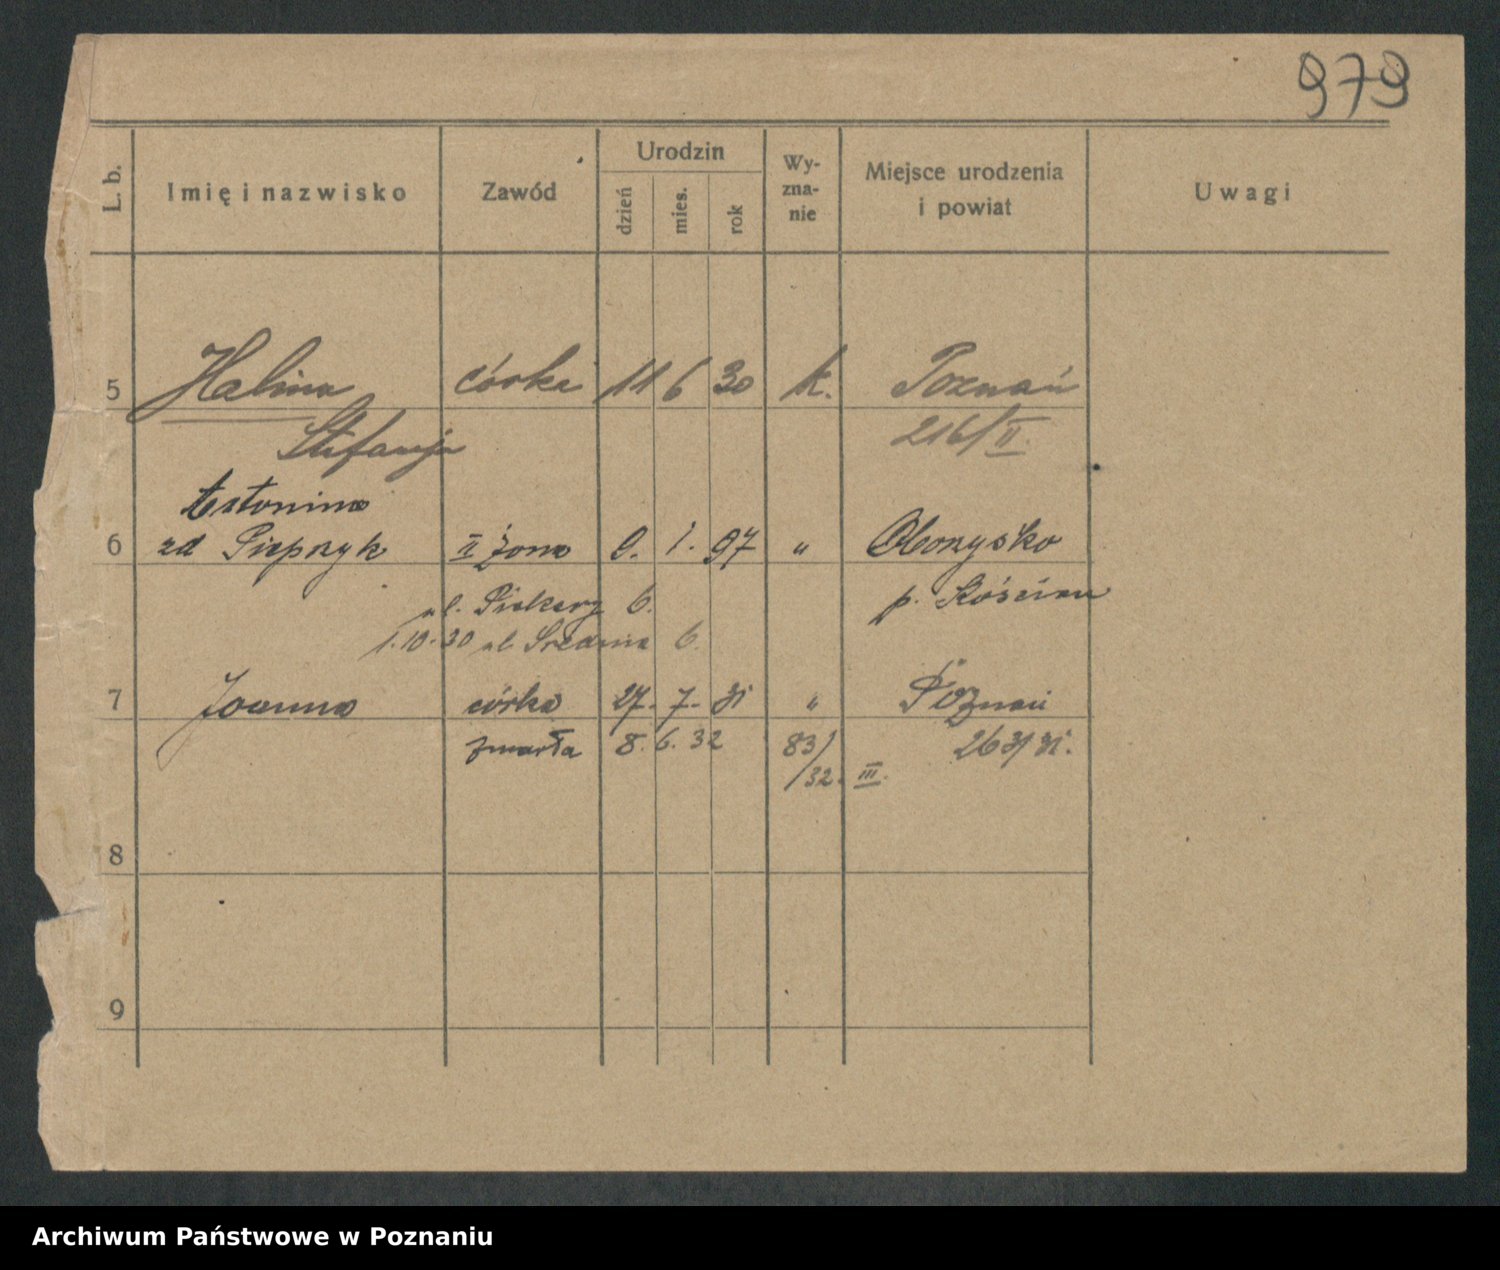 979
L. b. Imię i nazwisko Zawód Urodzin dzień mies. rok Wy-zna-nie Miejsce urodzenia i powiat Uwagi
5 Halina córka 11 6 30 k. Poznań
Stefanja 216/II.
Antonina
6 zd Pieprzyk II żona 9. 1. 97 " Oborzysko
ul. Piekary 6. p. Kościan
1.10.30 ul. Średnia 6.
7 Joanna córka 27. 7. 31 " Poznań
zmarła 8. 6. 32 83/32. III. 263/31.
8
9
Archiwum Państwowe w Poznaniu